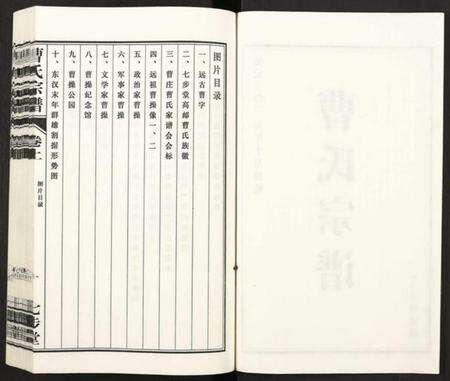 图片目录
一、远古曹字
二、七步堂高邮曹氏族徽
三、曹庄曹氏家谱会会标
四、远祖曹操像一、二
五、政治家曹操
六、军事家曹操
七、文学家曹操
八、曹操纪念馆
九、曹操公园
十、东汉末年群雄割据形势图
曹氏宗谱
卷上
图片目录
一
七步堂
曹氏宗谱